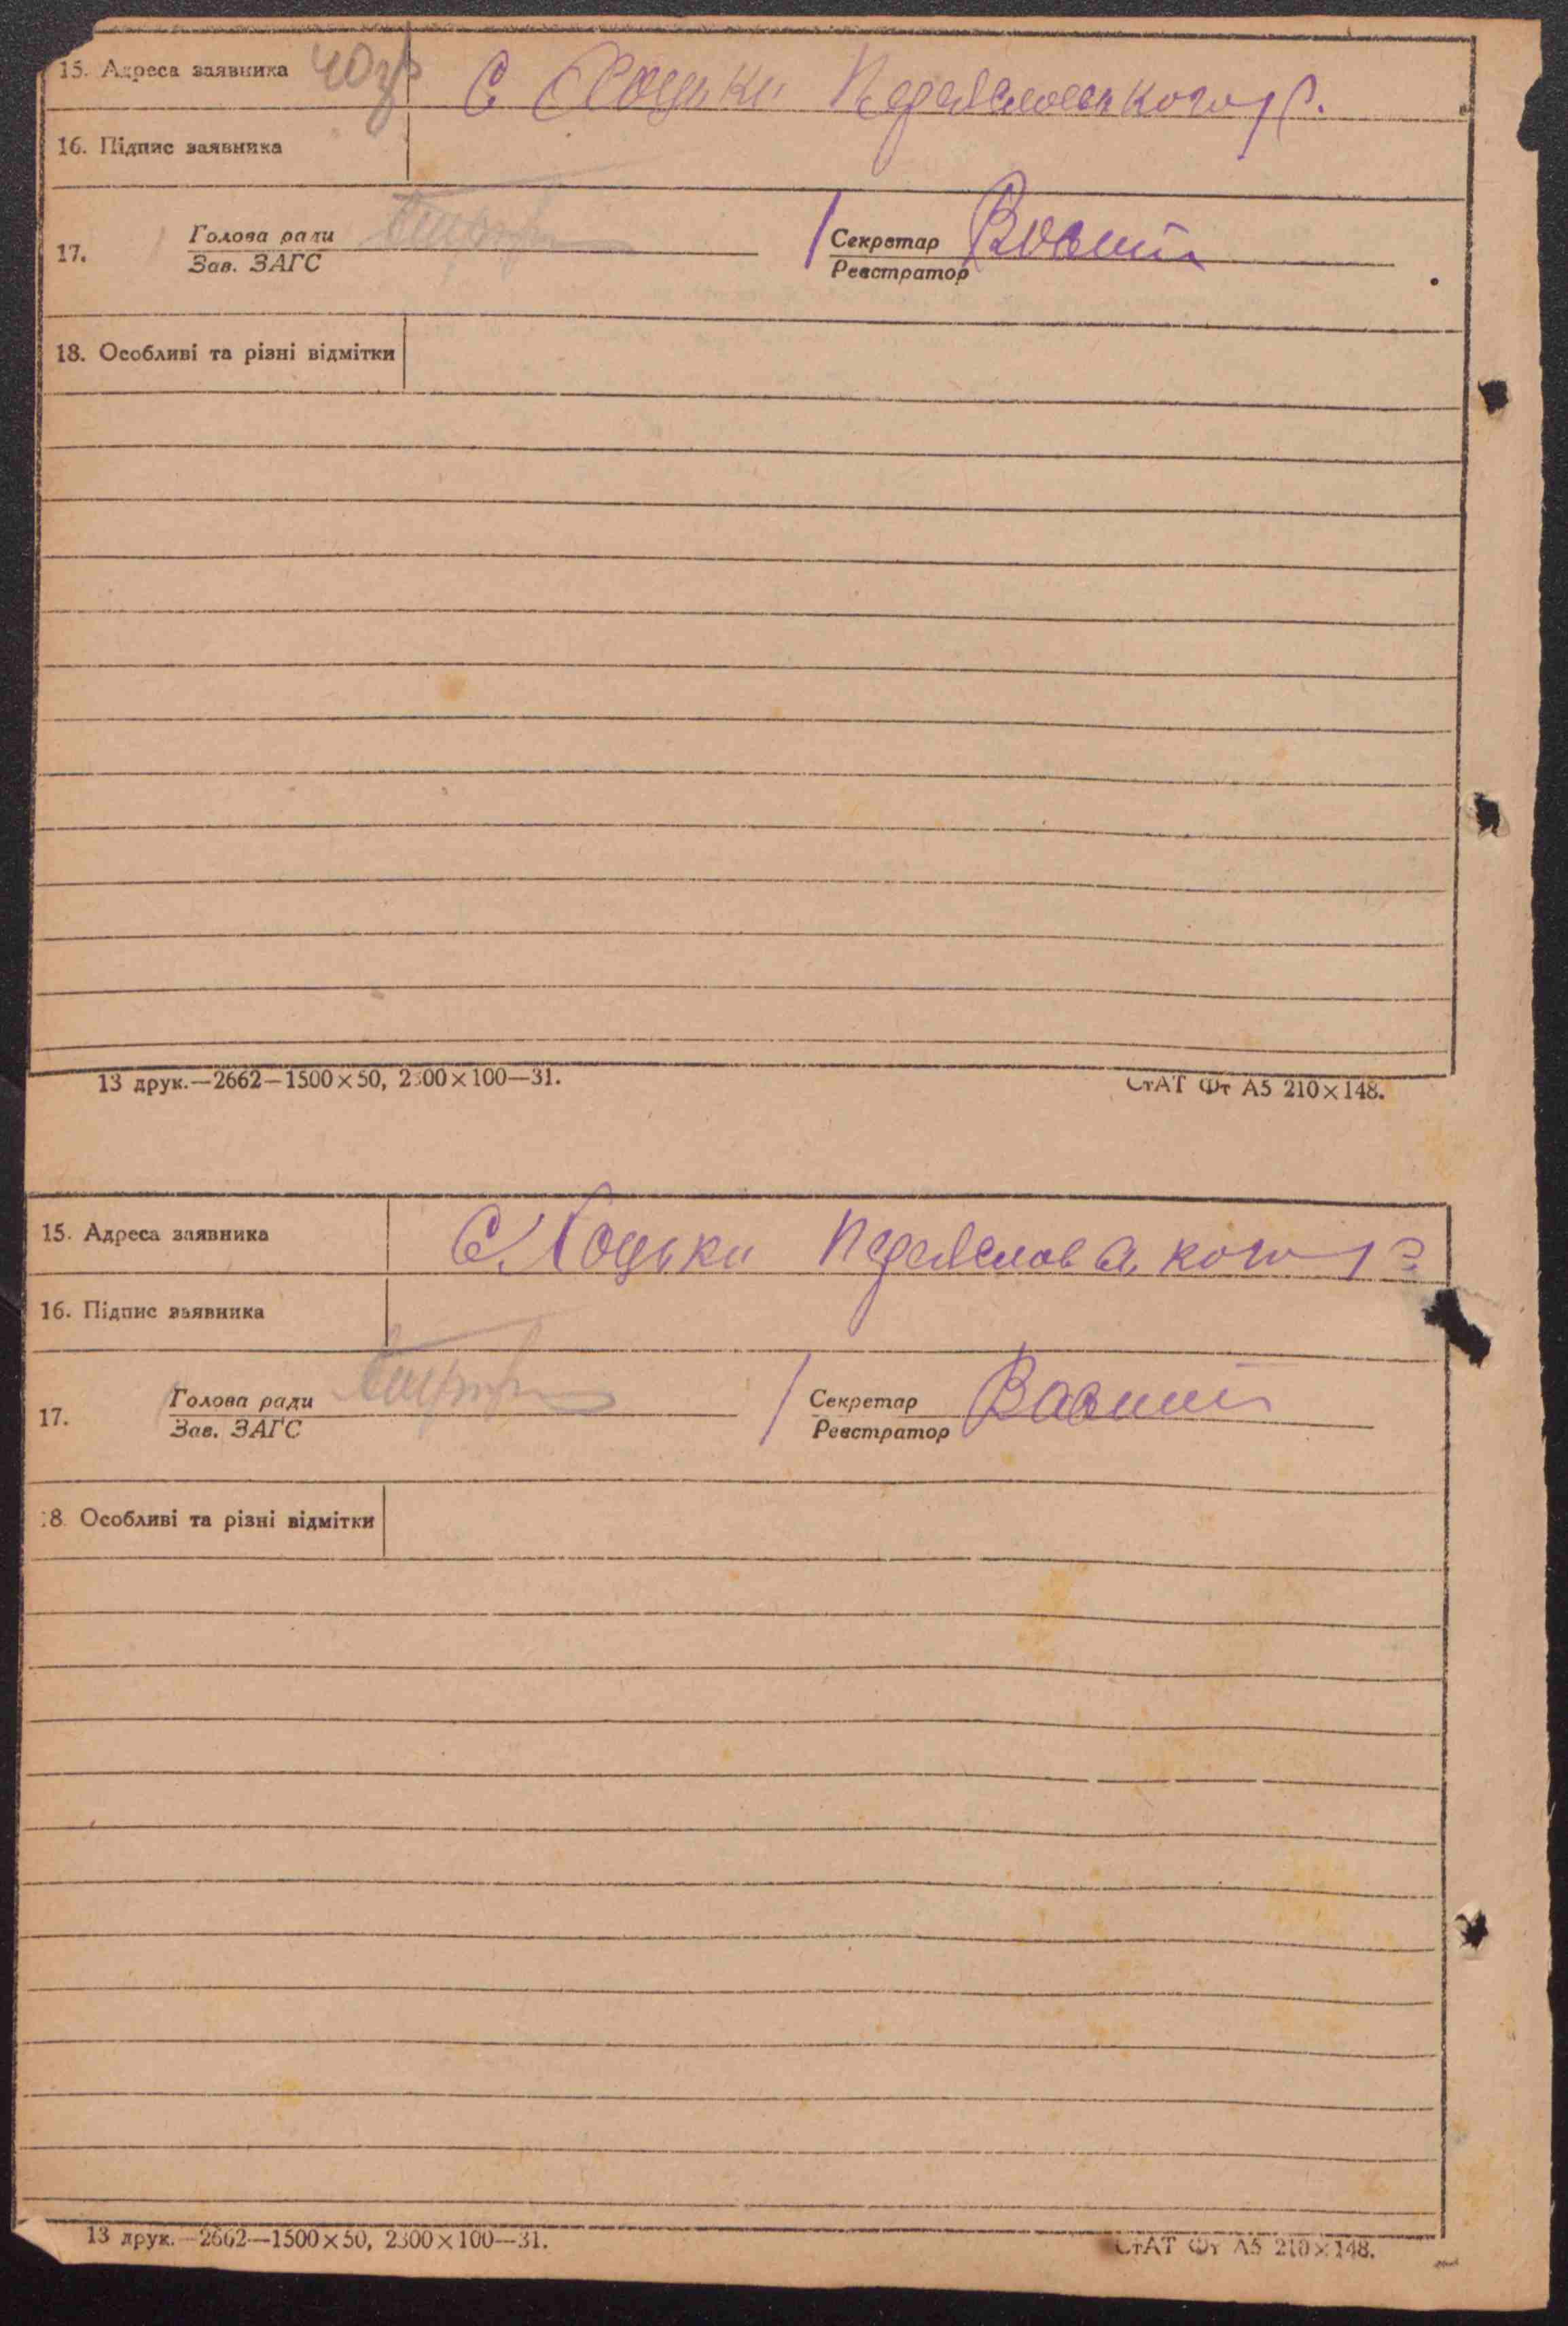 15. Адреса заявника 40зв С Хоцьки Переяславського р.
16. Підпис заявника
17. Голова ради Секретар
Зав. ЗАГС Реєстратор
18. Особливі та різні відмітки
13 друк.—2662—1500×50, 2300×100—31. СтАТ Фт А5 210×148.
15. Адреса заявника С Хоцьки Переяславського р
16. Підпис заявника
17. Голова ради Секретар
Зав. ЗАГС Реєстратор
18. Особливі та різні відмітки
13 друк.—2662—1500×50, 2300×100—31. СтАТ Фт А5 210×148.